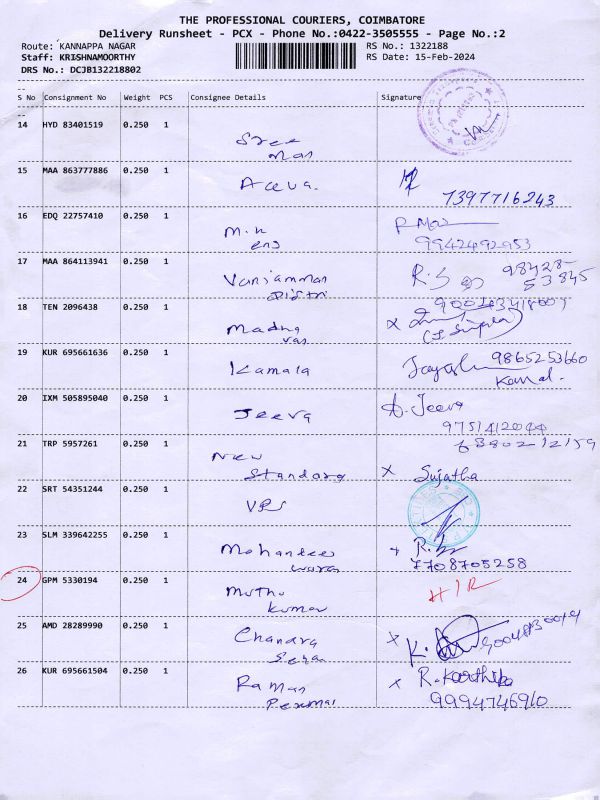 THE PROFESSIONAL COURIERS, COIMBATORE
Delivery Runsheet - PCX - Phone No.:0422-3505555 - Page No.:2
Route: KANNAPPA NAGAR RS No.: 1322188
Staff: KRISHNAMOORTHY RS Date: 15-Feb-2024
DRS No.: DCJB132218802
S No Consignment No Weight PCS Consignee Details Signature
14 HYD 83401519 0.250 1 Sree
15 MAA 863777886 0.250 1
7397716243
16 EDQ 22757410 0.250 1 M.K
9942492953
17 MAA 864113941 0.250 1 Vaniamman R.S 98428-
53845
18 TEN 2096438 0.250 1 Madhu
van
19 KUR 695661636 0.250 1 Kamala 9865253660
Kamal.
20 IXM 505895040 0.250 1 Jeeva A. Jeeva
21 TRP 5957261 0.250 1 New
Standard x Sujatha
22 SRT 54351244 0.250 1 VRS
23 SLM 339642255 0.250 1 Mohandes
waran 7708705258
24 GPM 5330194 0.250 1 Muthu
kumar H/R
25 AMD 28289990 0.250 1 Chandra x
26 KUR 695661504 0.250 1 Raman x R. Karthik
Perumal 9994746910